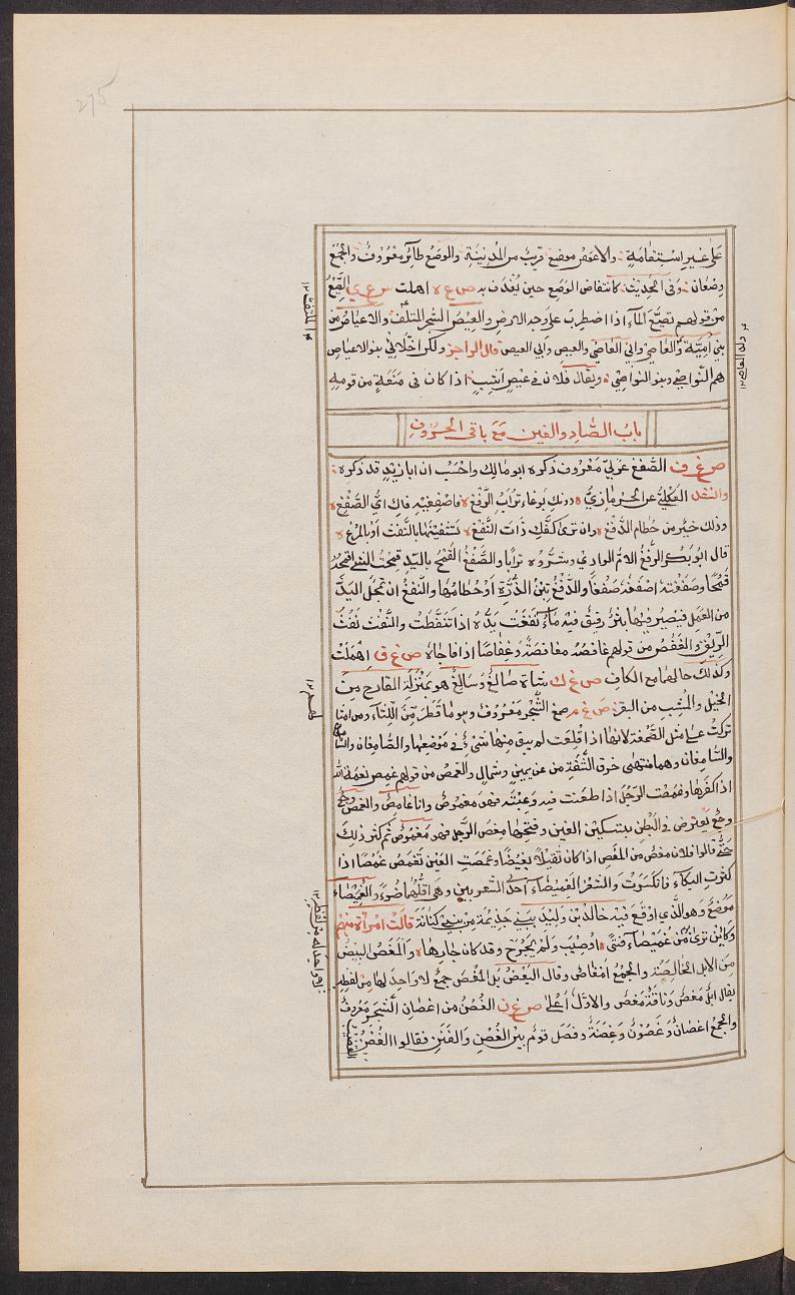 275
على غير استقامة والاعوص موضع قريب من المدينة والوصع طائر معروف والجمع
وصعان وفى الحديث كانتفاض الوصع حين يقذف به ص ع ه اهملت ص ع ي الصيع
من قولهم تصيع المآء اذا اضطرب على وجه الارض والعيص الشجر الملتف والاعياص من
بني أمية والعاصي وابي العاصي والعيص وابي العيص قال الراجز ولكن اخلائي بنو الاعياص
هم النواصي وبنو النواصي ويقال فلان في عيص أشب اذا كان فى منعة من قومه
باب الصاد والغين مع باقى الحروف
ص غ ف الصفغ عربي معروف ذكره ابو مالك واحسب ان ابا زيد قد ذكره
وانشد العكلي عن الحرمازي دونك بوغاء تراب الرفغ فاصفغيه فاك اي الصفغ
وذلك خير من حطام الدفغ وان ترى كفك ذات النفغ تشفينها بالنفث او بالمرغ
قال ابو بكر الرفغ الأم الوادي وشره ترابا والصفغ القمح باليد قمحت الشئ اقمحه
قمحا وصفغته اصفغه صفغا والدفغ تبن الذرة او حطامها والنفغ ان تمجل اليد
من العمل فيصير فيها بثر رقيق فيه مآء نفغت يده اذا تنفطت والنفث نفث
الريق والغفص من قولهم غافصه مغافصة وغفاصا اذا فاجاه ص غ ق اهملت
وكذلك حالهما مع الكاف ص غ ل شاة صالغ وسالغ هو بمنزلة القارح من
الخيل والمشب من البقر ص غ م صمغ الشجر معروف وهو ما قطر من اللثاء ومن امثالهم
تركت على مثل الصمغة لانها اذا اقلعت لم يبق منها شئ في موضعها والصامغان
والسامغان وهما منتهى خرق الشفة من عن يمين وشمال والغمص من قولهم غمص نعمة الله
اذا كفرها وغمصت الرجل اذا طعنت فيه وعبته فهو مغموص وانا غامص والمغص وجع
وجع يعترض في البطن بتسكين الغين وفتحها مغص الرجل فهو مغموص ثم كثر ذلك
حتى قالوا فلان مغص من المغص اذا كان ثقيلا بغيضا وغمصت العين تغمص غمصا اذا
كثرت البكآء فانكسرت والشعرى الغميصاء احدى الشعريين وهي اقلهما ضوء والغميصاء
موضع وهو الذي اوقع فيه خالد بن وليد ببني جذيمة من بني كنانة قالت امرأة منهم
وكاين ترى من غميصاء فتى اصيب ولم يجرح وقد كان جارها والمغص البيض
من الابل الخالصة والجمع امغاص وقال البعض بل المغص جمع لا واحد لها من لفظه
يقال ابل مغص وناقة مغص والاول أعلى ص غ ن الغصن من اغصان الشجر معروف
والجمع اغصان وغصون وغصنة وفصل قوم بين الغصن والفنن فقالوا الغصن القضيب
الملتف ١٢